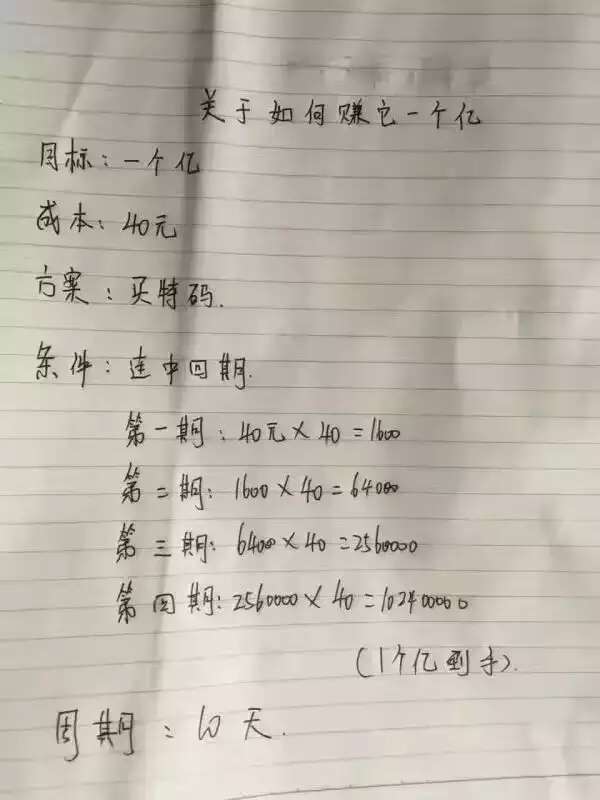 关于如何赚它一个亿
目标：一个亿
成本：40元
方案：买特码.
条件：连中四期.
第一期：40元×40=1600
第二期：1600×40=64000
第三期：64000×40=2560000
第四期：2560000×40=102400000
（1个亿到手）.
周期：10天.